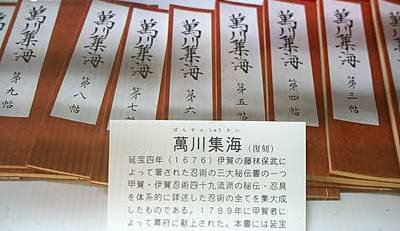 萬川集海
第九帖
萬川集海
第八帖
萬川集海
第七帖
萬川集海
第六
萬川集海
第五帖
萬川集海
第四帖
萬川集海
第三帖
ばんせんしゅうかい
萬川集海（復刻）
延宝四年（1676）伊賀の藤林保武に
よって著された忍術の三大秘伝書の一つ
甲賀・伊賀忍術四十九流派の秘伝・忍具
を体系的に詳述した忍術の全てを集大成
したものである。1789年に甲賀者に
よって幕府に献上された。本書には延宝